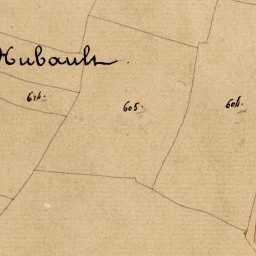 Hubault.
616.
605.
604.